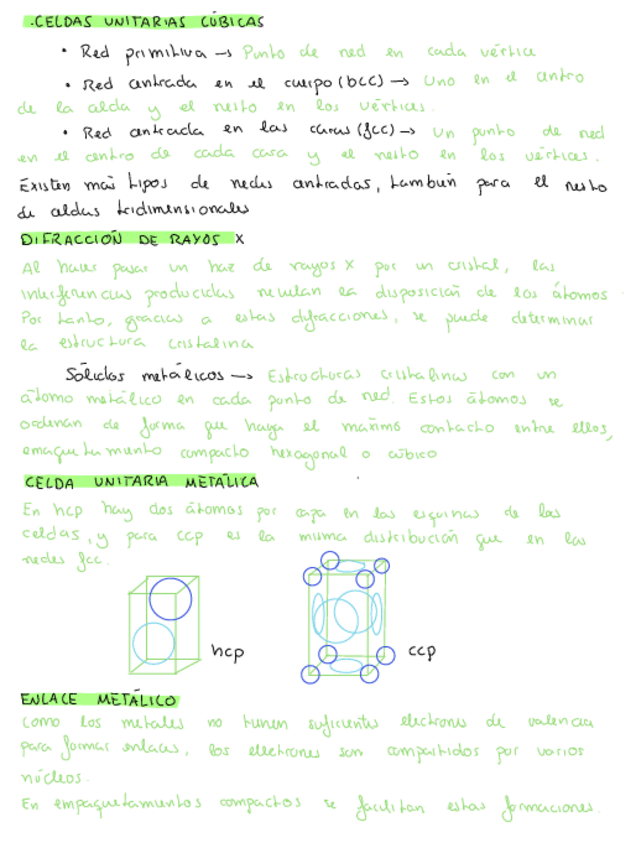 .CELDAS UNITARIAS CÚBICAS
• Red primitiva → Punto de red en cada vértice
• Red centrada en el cuerpo (bcc) → Uno en el centro
de la celda y el resto en los vértices.
• Red centrada en las caras (fcc) → Un punto de red
en el centro de cada cara y el resto en los vértices.
Existen más tipos de redes centradas, también para el resto
de celdas tridimensionales
DIFRACCIÓN DE RAYOS X
Al hacer pasar un haz de rayos X por un cristal, las
interferencias producidas revelan la disposición de los átomos
Por tanto, gracias a estas difracciones, se puede determinar
la estructura cristalina
Sólidos metálicos → Estructuras cristalinas con un
átomo metálico en cada punto de red. Estos átomos se
ordenan de forma que haya el máximo contacto entre ellos,
empaquetamiento compacto hexagonal o cúbico
CELDA UNITARIA METÁLICA
En hcp hay dos átomos por capa en las esquinas de las
celdas, y para ccp es la misma distribución que en las
redes fcc.
hcp
ccp
ENLACE METÁLICO
Como los metales no tienen suficientes electrones de valencia
para formar enlaces, los electrones son compartidos por varios
núcleos.
En empaquetamientos compactos se facilitan estas formaciones.